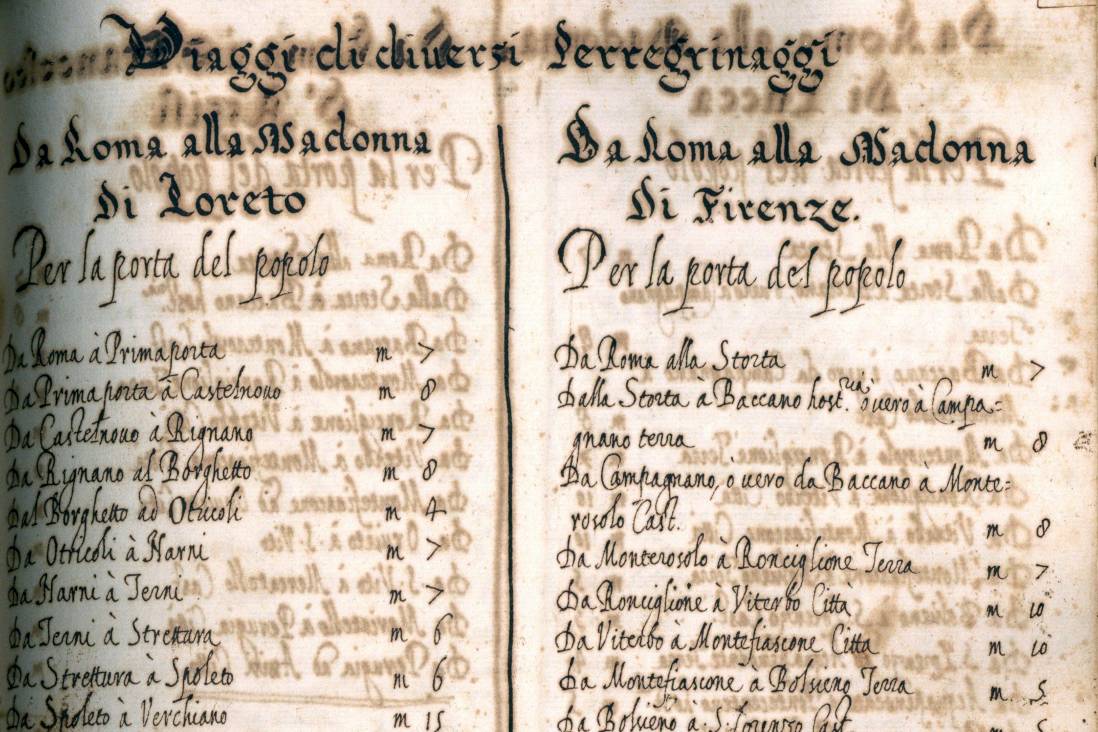 Viaggi di diversi Perregrinaggi
Da Roma alla Madonna
di Loreto
Per la porta del popolo
Da Roma à Primaporta m 7
Da Prima porta à Castelnouo m 8
Da Castelnouo à Rignano m 7
Da Rignano al Borghetto m 8
Dal Borghetto ad Otricoli m 4
Da Otricoli à Narni m 7
Da Narni à Terni m 7
Da Terni à Strettura m 6
Da Strettura à Spoleto m 6
Da Spoleto à Verchiano m 15
Da Roma alla Madonna
di Firenze.
Per la porta del popolo
Da Roma alla Storta m 7
Dalla Storta à Baccano host. ouero à Campa=
gnano terra m 8
Da Campagnano, ò uero da Baccano à Monte=
rosolo Cast. m 8
Da Monterosolo à Ronciglione Terra m 7
Da Ronciglione à Viterbo Città m 10
Da Viterbo à Montefiascone Citta m 10
Da Montefiascone à Bolsieno Terra m. 5
Da Bolsieno à S. Lorenzo Cast.